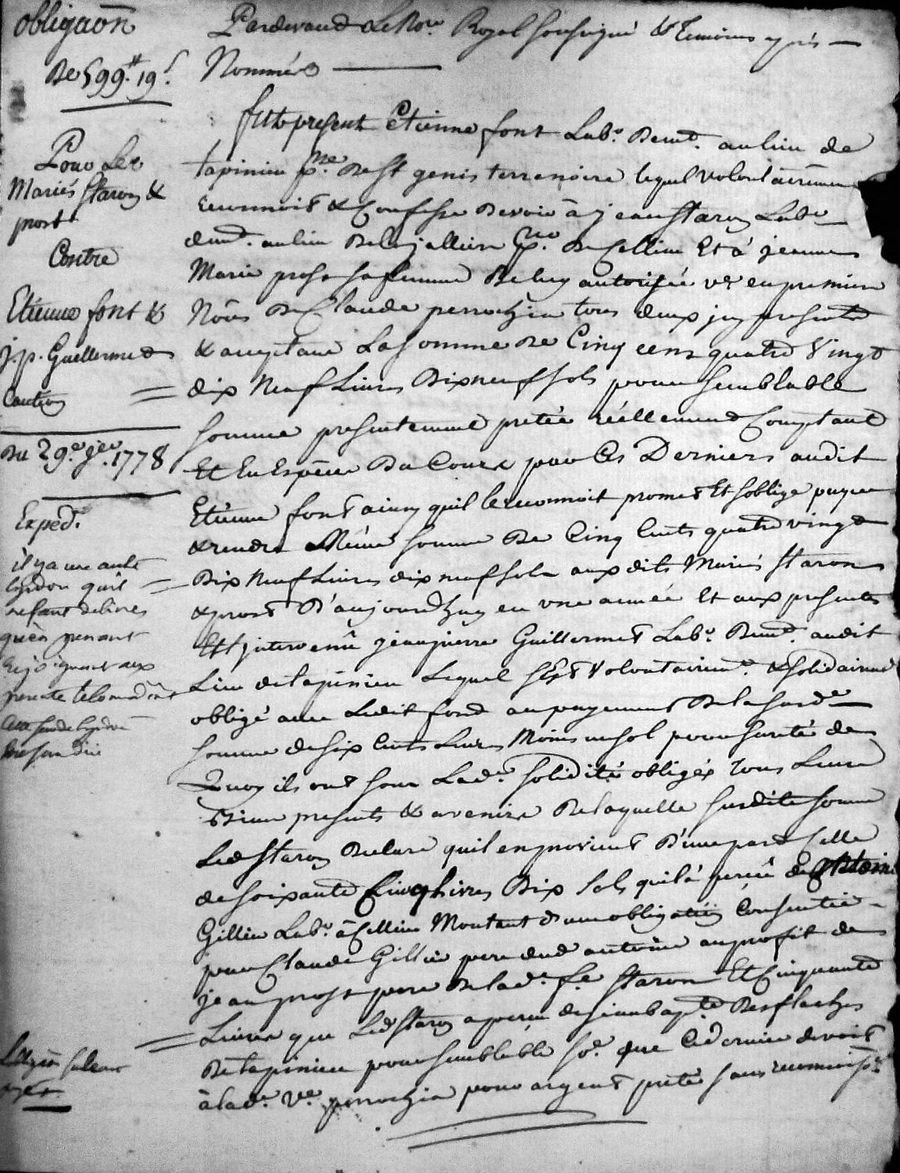 obligaôn
De 599.# 19.s
Pour Les
Mariés Staron &
prost
Contre
Etienne font &
j.p. Guellermet
Caution
Du 29e. 1778
Exped.
il ya une autre
Pardevant le Nore. Royal soussigné & Temoins après
Nommés
fut present Etienne font Labr. Demt. au lieu de
tapinieu psse. De St genis terrenoire lequel volontairement
reconnoit & Confesse Devoir à jean Staron Labr.
demt. au lieu De psse. De Cellieu Et à jeanne
Marie prost sa femme De luy autorisée ve. en premier
Nôces De Claude perrochia tous deux icy presents
& acceptant La somme De Cinq cens quatre Vingt
dix Neuf Livres Dix neuf sols pour semblable
somme presentement pretée réellement Comptant
Et En Espèces Du Cours par Ces Derniers audit
Etienne font ainsy quil le reconnoit promet Et soblige payer
& rendre Même somme De Cinq Cents quatre vingt
Dix Neuf Livres dix neuf sols auxdits Mariés Staron
& prost D'aujourd'huy en une année Et aux presentes
Est intervenû jean pierre Guillermet Labr. Demt. audit
Lieu de tapinieu Lequel s'est Volontairemt. & solidairemt
obligé avec Ledit font au payement De la susde.
somme de six Cents Livres Moins un sol pour sureté de
Quoy ils ont sous Lade. solidité obligés Tous Leurs
Biens presents & avenirs De laquelle susdite somme
Led Staron Declare quil en provient D'une part Celle
de soixante Cinq Livres Dix sols quil à perçû de Antoine
Gillier Labr. à Cellieu Montant d'une obligation Consentie
par Claude Gillier pere dud antoine au profit de
jean prost pere De lade. fe Staron Et Cinquante
Livres que Led Staron a perçu de jean bapte. Desflaches
De tapinieu pour semblable se. que Ce dernier devoit
à lade. ve. perrochia pour argent preté sans reconnoisce.